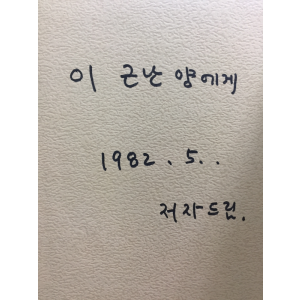 이 근난 양에게
1982. 5..
저자드림.